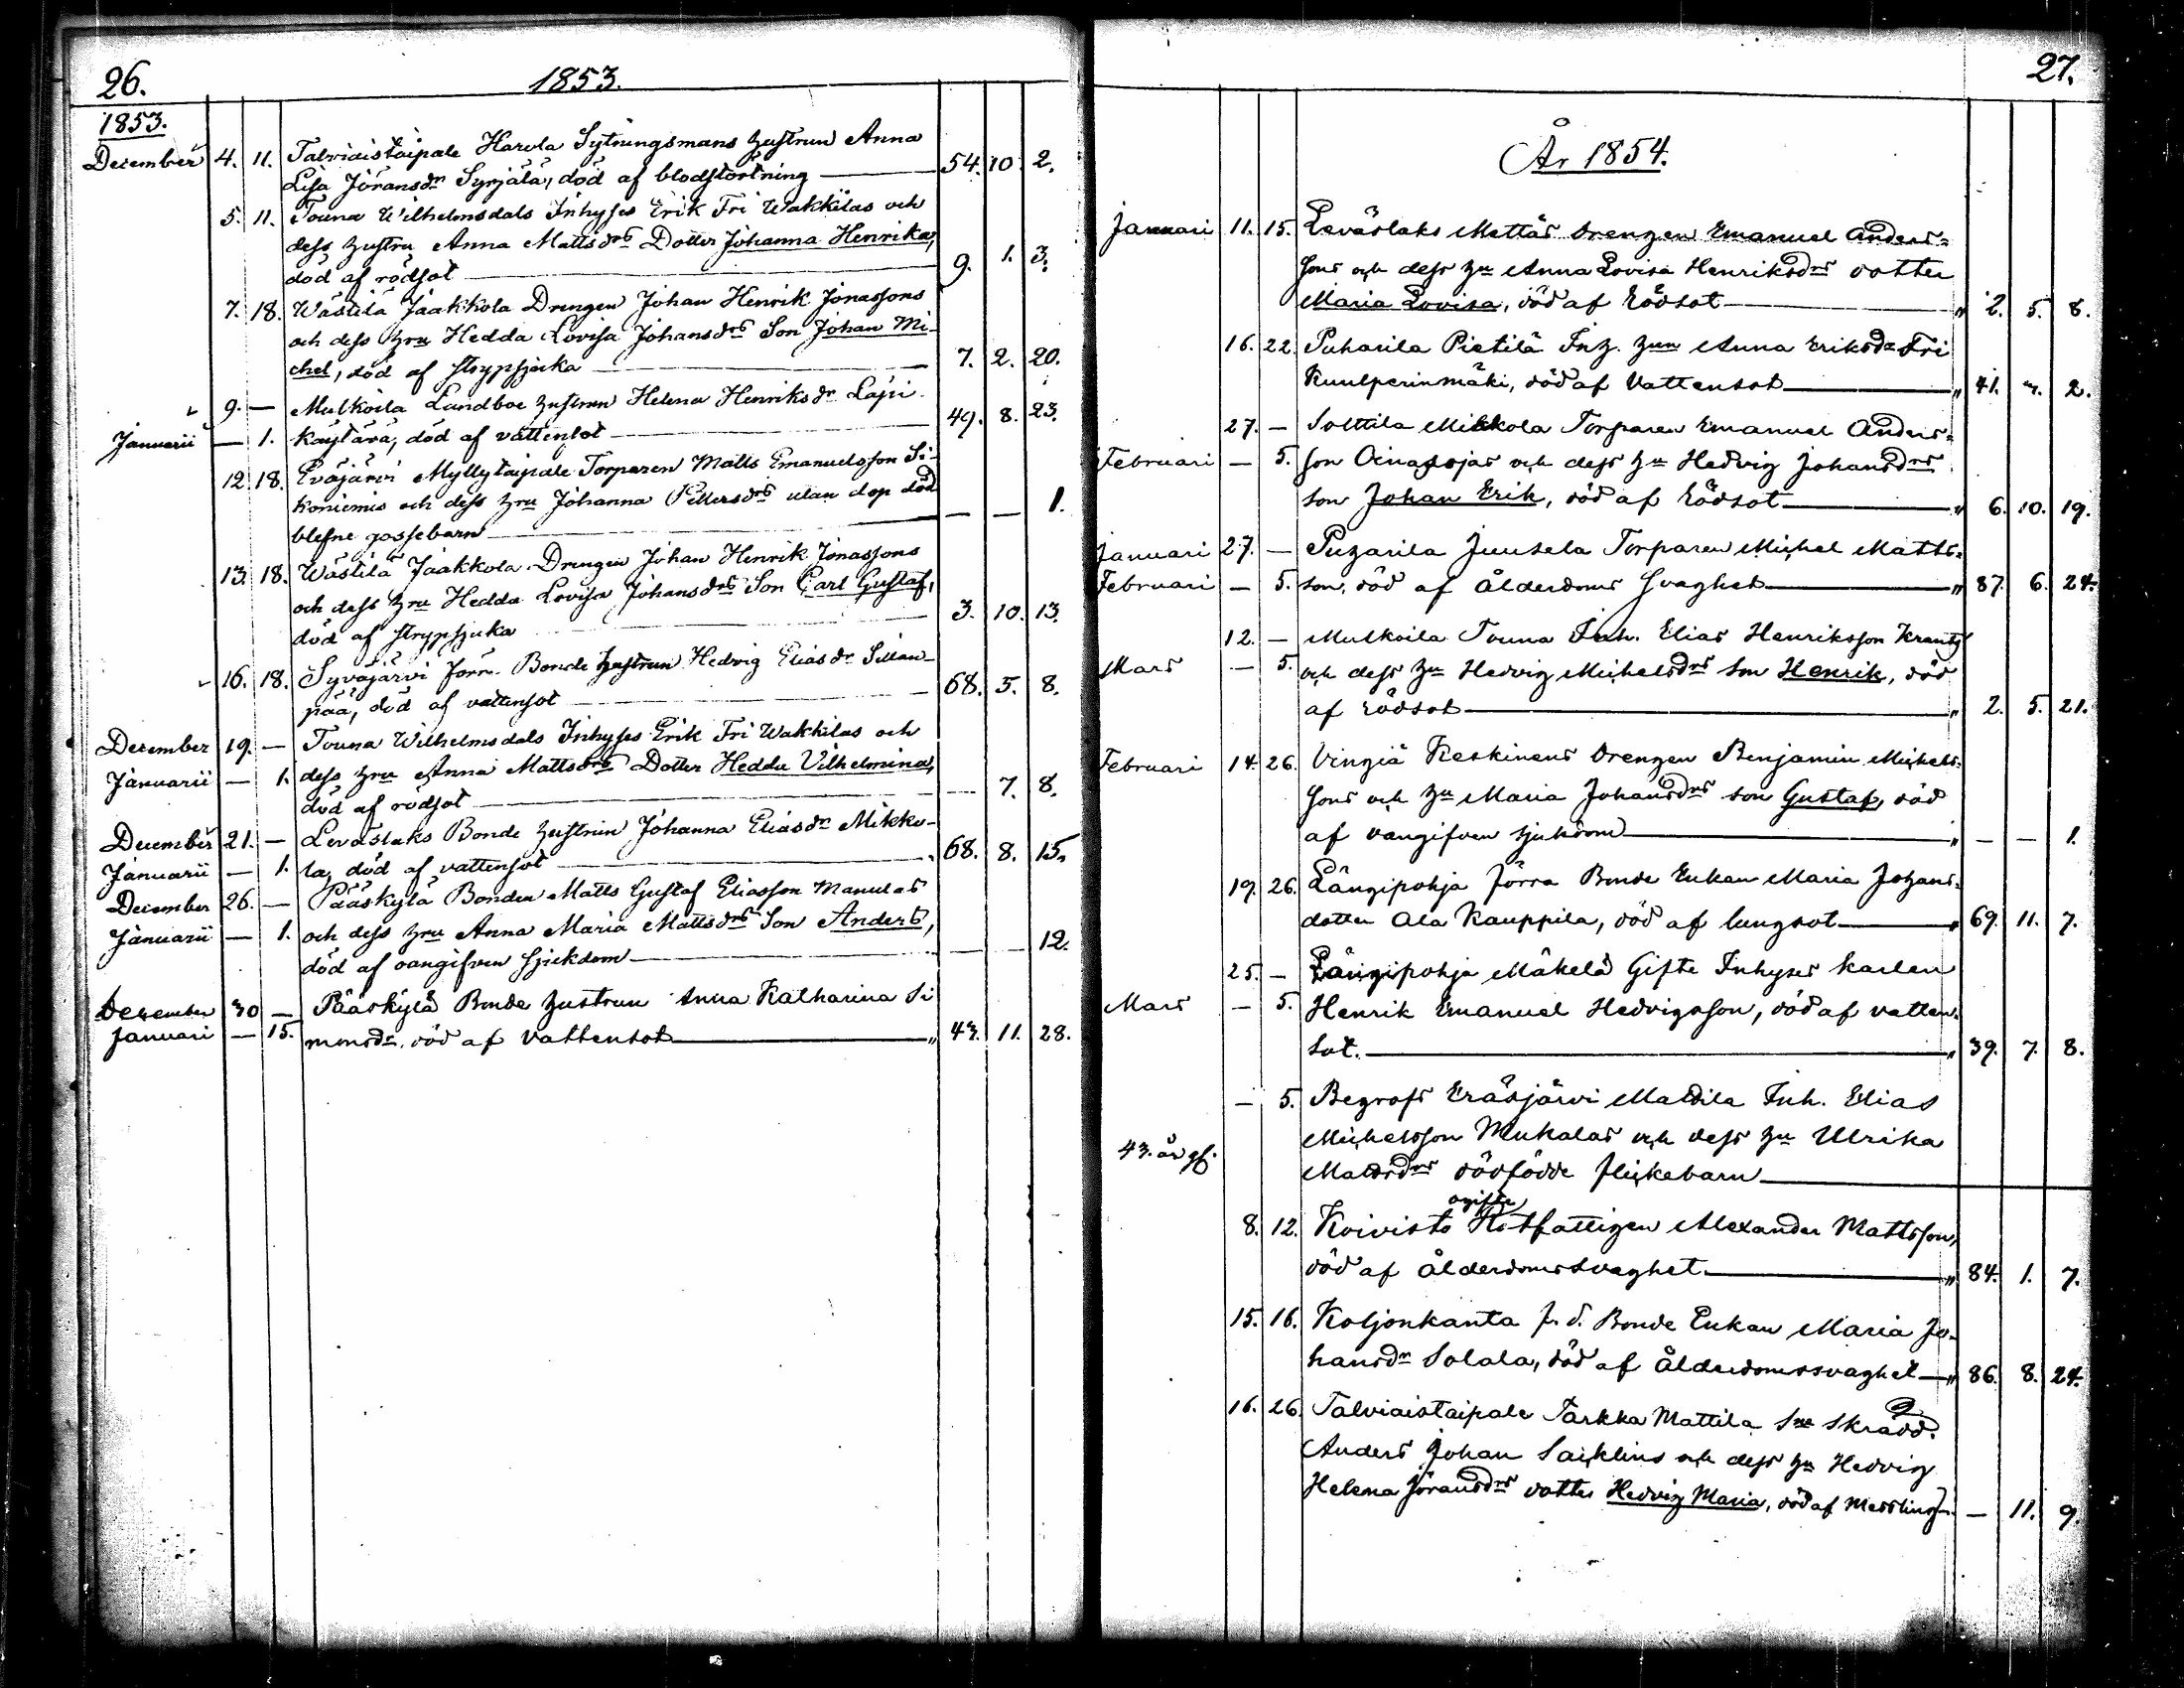 26. 1853.
1853.
December 4. 11. Talviaistaipale Harola Sytningsmans hustrun Anna
Lisa Jöransdr Syrjälä, död af blodstörtning — 54. 10. 2.
5. 11. Touna Wilhelmsdals Inhyses Erik Fri Wakkilas och
dess hustru Anna Mattsdrs Dotter Johanna Henrika,
död af rödsot — 9. 1. 3.
7. 18. Wästilä Jaakkola Drengen Johan Henrik Jonassons
och dess hru Hedda Lovisa Johansdrs Son Johan Mi-
chel, död af strypsjuka — 7. 2. 20.
9. — Mulkoila Landboe hustrun Helena Henriksdr Lapi
Januarii — 1. käytävä, död af vattensot — 49. 8. 23.
12. 18. Eväjärvi Myllytaipale Torparen Matts Emanuelsson Si-
koniemis och dess hru Johanna Pettersdrs utan dop död
blefne gossebarn — — — 1.
13. 18. Wästilä Jaakkola Drengen Johan Henrik Jonassons
och dess hru Hedda Lovisa Johansdrs Son Carl Gustaf,
död af strypsjuka 3. 10. 13.
16. 18. Syväjärvi Jörr. Bonde hustrun Hedvig Eliasdr Sillan-
pää, död af vattensot — 68. 5. 8.
December 19. — Touna Wilhelmsdals Inhyses Erik Fri Wakkilas och
Januarii — 1. dess hru Anna Mattsdrs Dotter Hedda Vilhelmina,
död af rödsot — — 7. 8.
December 21. — Leväslaks Bonde hustrun Johanna Eliasdr Mikko-
Januarii — 1. la, död af vattensot — 68. 8. 15.
December 26. — Pääskylä Bonden Matts Gustaf Eliasson Manulas
Januarii — 1. och dess hru Anna Maria Mattsdrs Son Anders,
död af oangifven sjukdom — — — 12.
December 30 — Pääskylä Bonde hustrun Anna Katharina Si
Januari — 15. monsdr. död af Vattensot — " 43. 11. 28.
27.
År 1854.
Januari 11. 15. Leväslaks Mattas Drengen Emanuel Anders=
sons och dess hu Anna Lovisa Henriksdrs dotter
Maria Lovisa, död af Rödsot — " 2. 5. 8.
16. 22. Puharila Pietilä Inh. hun Anna Eriksdr Fri
Kuulperinmäki, död af Vattensot — " 41. 7. 2.
27. — Solttila Mikkola Torparen Emanuel Anders=
Februari — 5. son Oinasojas och dess hu Hedvig Johansdrs
son Johan Erik, död af Rödsot — " 6. 10. 19.
Januari 27. — Puharila Juusela Torparen Michel Matts=
Februari — 5. son, död af Ålderdoms Svaghet — " 87. 6. 24.
12. — Mulkoila Touna Inh. Elias Henriksson Krantz
Mars — 5. och dess hu Hedvig Michelsdrs son Henrik, död
af Rödsot — " 2. 5. 21.
Februari 14. 26. Vingiä Keskinens Drengen Benjamin Michels-
sons och hu Maria Johansdrs son Gustaf, död
af oangifven sjukdom — " — — 1.
19. 26. Längipohja Jörra Bonde Enkan Maria Johans-
dotter Ala Kauppila, död af lungsot — " 69. 11. 7.
25. — Längipohja Mäkelä Gifte Inhyses karlen
Mars — 5. Henrik Emanuel Hedvigsson, död af vatten
sot. — " 39. 7. 8.
— 5. Begrofs Eräsjärvi Mattila Inh. Elias
Michelsson Mukalas och dess hu Ulrika
43. år gf.
Mattsdrs dödfödde flickebarn —
ogifte
8. 12. Koivisto Rotfattigen Alexander Mattsson,
död af Ålderdomssvaghet — " 84. 1. 7.
15. 16. Koljonkanta f. d. Bonde Enkan Maria Jo-
hansdr Solala, död af Ålderdomssvaghet — " 86. 8. 24.
16. 26. Talviaistaipale Tarkka Mattila Sne Skrädd.
Anders Johan Saicklins och dess hu Hedvig
Helena Jöransdrs dotter Hedvig Maria, död af Messling — — 11. 9.